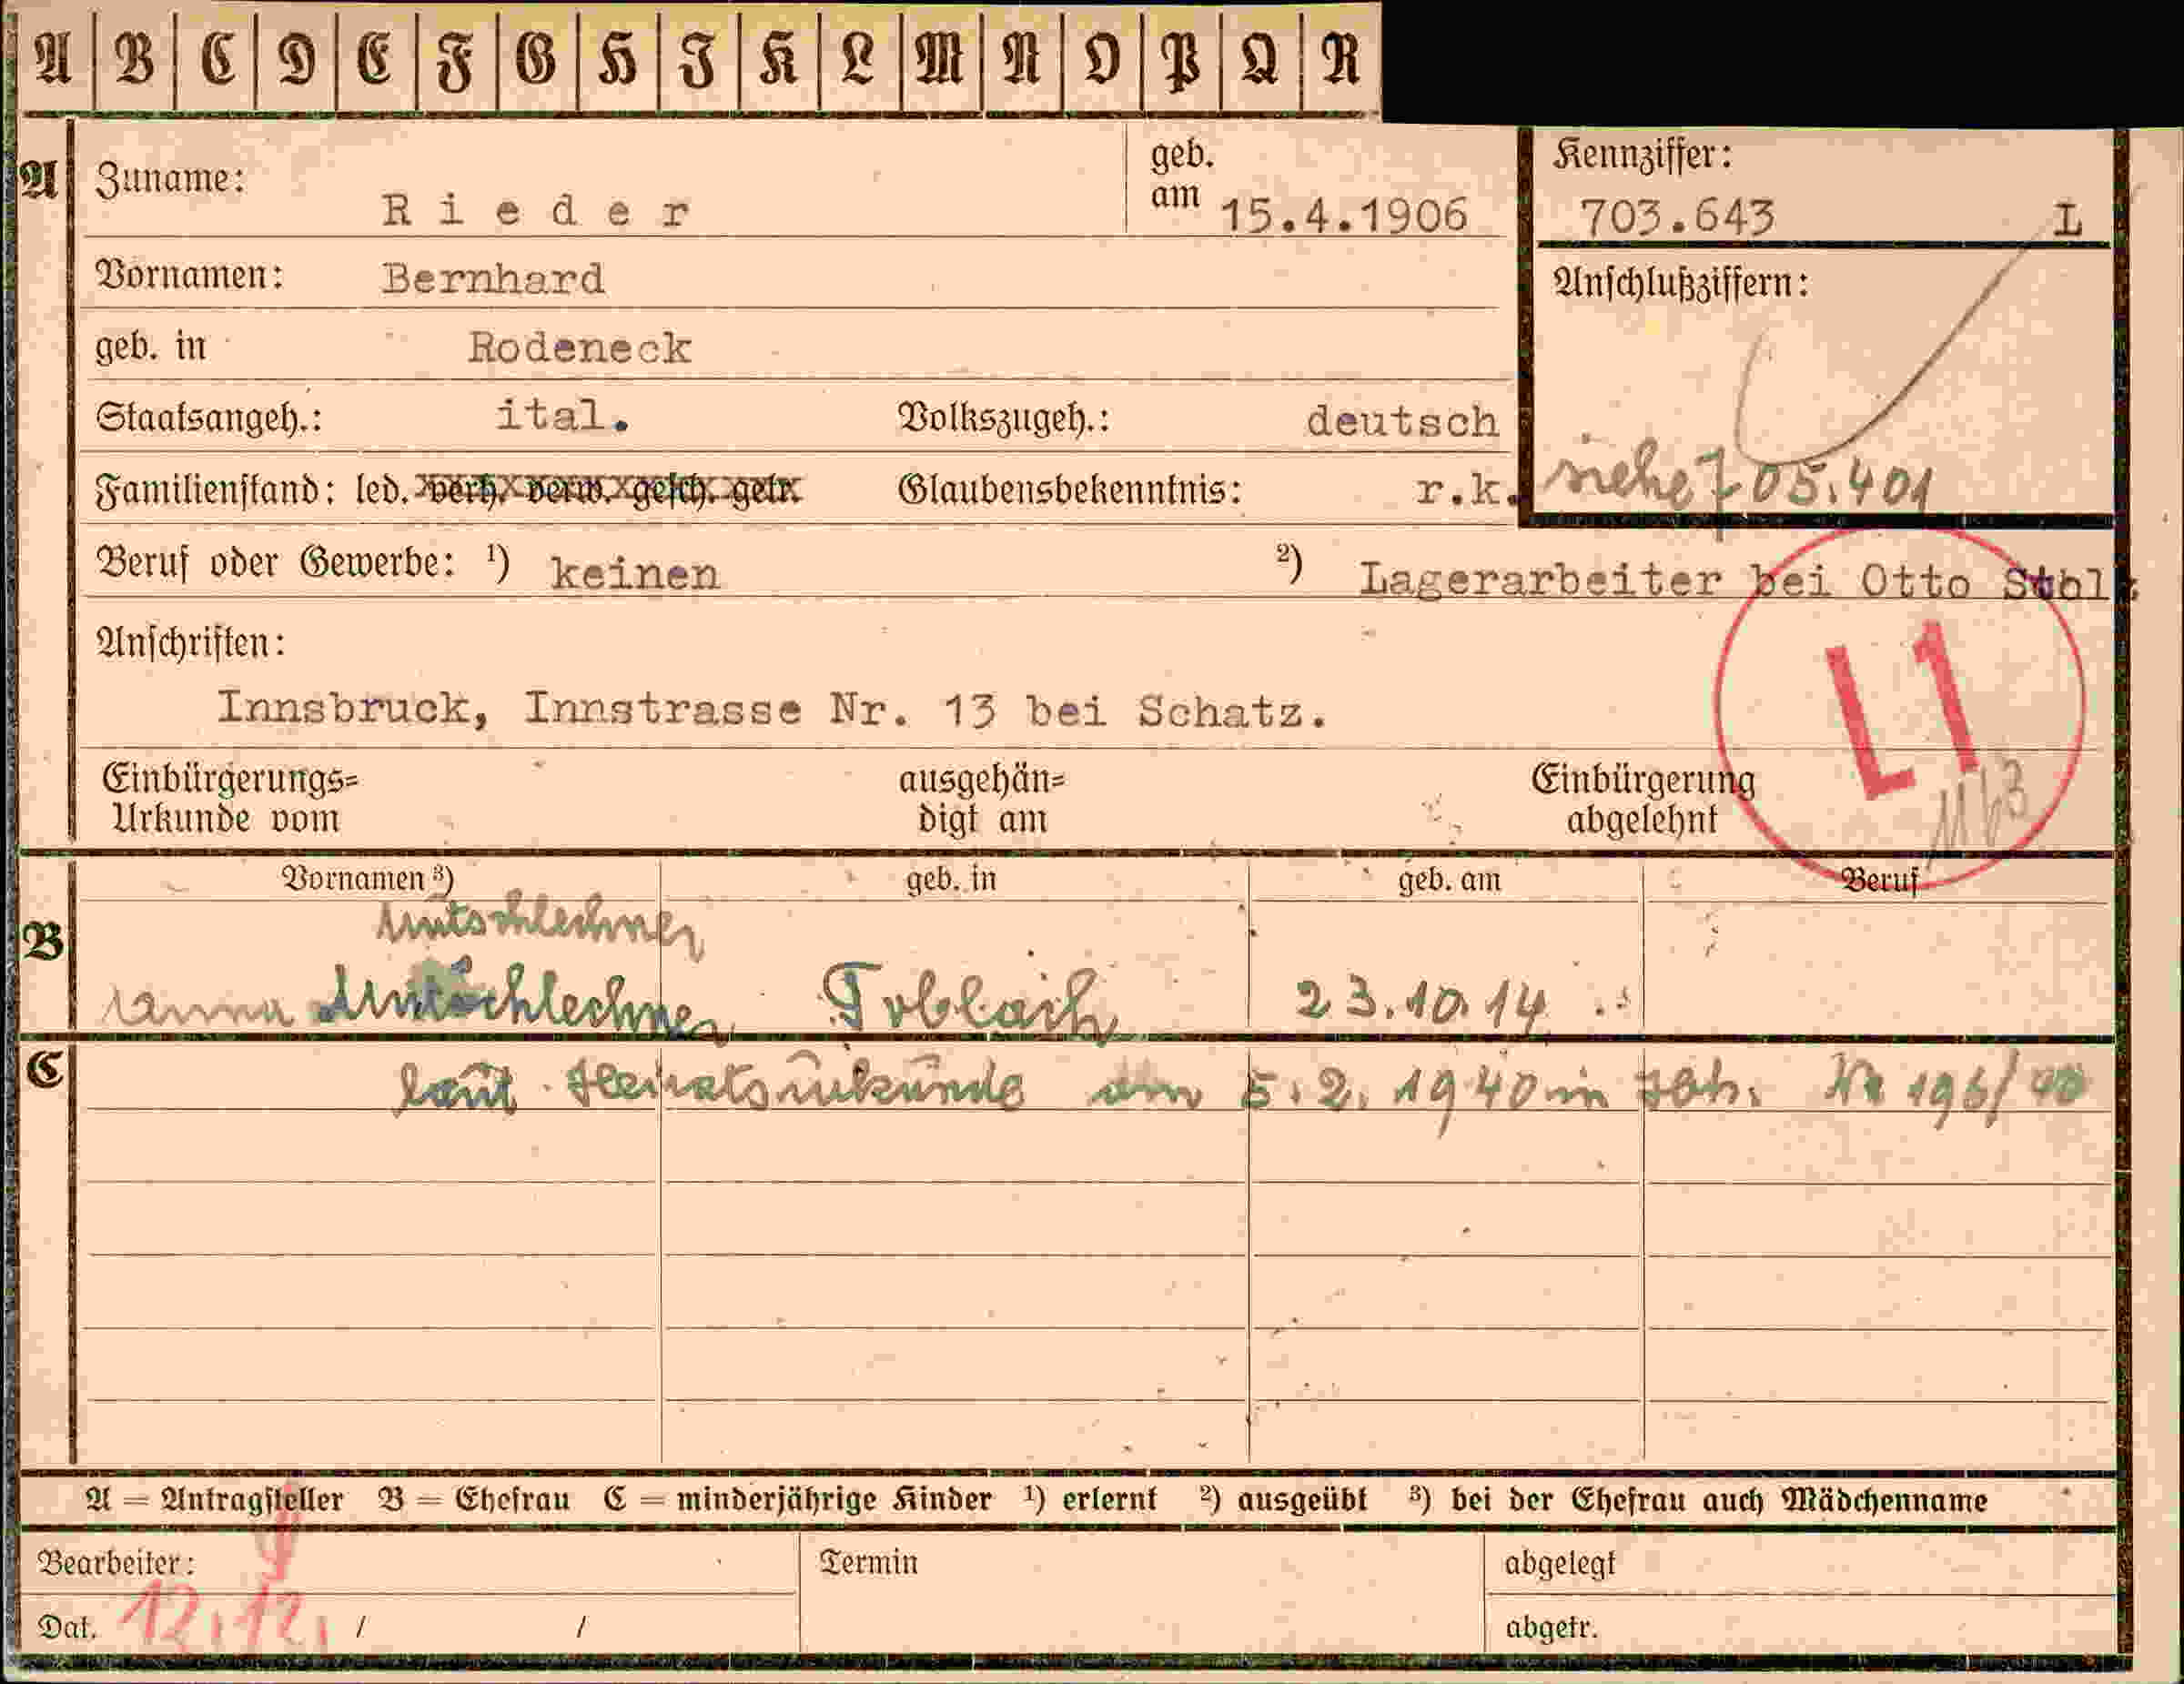 A B C D E F G H I K L M N O P Q R
A Zuname: Rieder geb. am 15.4.1906
Kennziffer: 703.643 L
Vornamen: Bernhard
Anschlußziffern:
geb. in Rodeneck
Staatsangeh.: ital. Volkszugeh.: deutsch
Familienstand: led. verh. verw. gesch. getr. Glaubensbekenntnis: r.k.
siehe 705.401
Beruf oder Gewerbe: ¹) keinen ²) Lagerarbeiter bei Otto
L1
Anschriften:
Innsbruck, Innstrasse Nr. 13 bei Schatz.
Einbürgerungs= ausgehän= Einbürgerung
Urkunde vom digt am abgelehnt
Vornamen ³) geb. in geb. am Beruf
Mutschlechner
B Anna Mutschlechner Toblach 23.10.14
C laut Heiratsurkunde am 5.2.1940 in Nr 196/40
A = Antragsteller B = Ehefrau C = minderjährige Kinder ¹) erlernt ²) ausgeübt ³) bei der Ehefrau auch Mädchenname
Bearbeiter: Termin abgelegt
Dat. 12.12. / / abgetr.